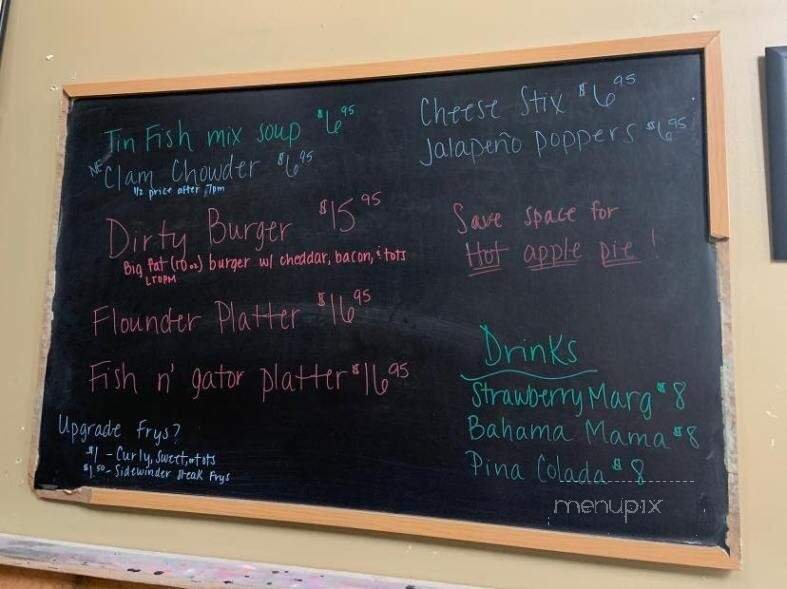 Tin Fish mix soup $6.95
NE Clam Chowder $6.95
1/2 price after 7pm
Dirty Burger $15.95
Big Fat (10 oz) burger w/ cheddar, bacon, & tots
Flounder Platter $16.95
Fish n' gator platter $16.95
Upgrade Frys?
$1 - Curly, Sweet, or tots
$1.50 - Sidewinder steak Frys
Cheese Stix $6.95
Jalapeño poppers $6.95
Save space for
Hot apple pie!
Drinks
Strawberry Marg $8
Bahama Mama $8
Pina Colada $8
menupix